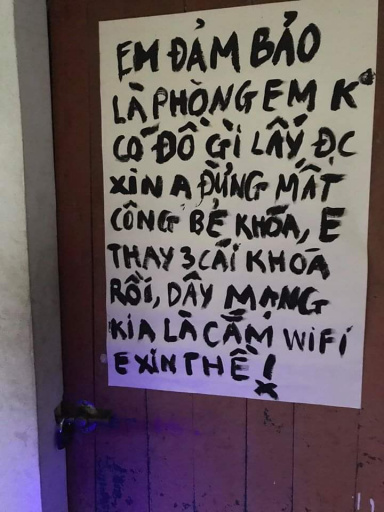 EM ĐẢM BẢO
LÀ PHÒNG EM K
CÓ ĐỒ GÌ LẤY ĐC
XIN A ĐỪNG MẤT
CÔNG BẺ KHÓA, E
THAY 3 CÁI KHÓA
RỒI, DÂY MẠNG
KIA LÀ CẮM WIFI
E XIN THỀ !